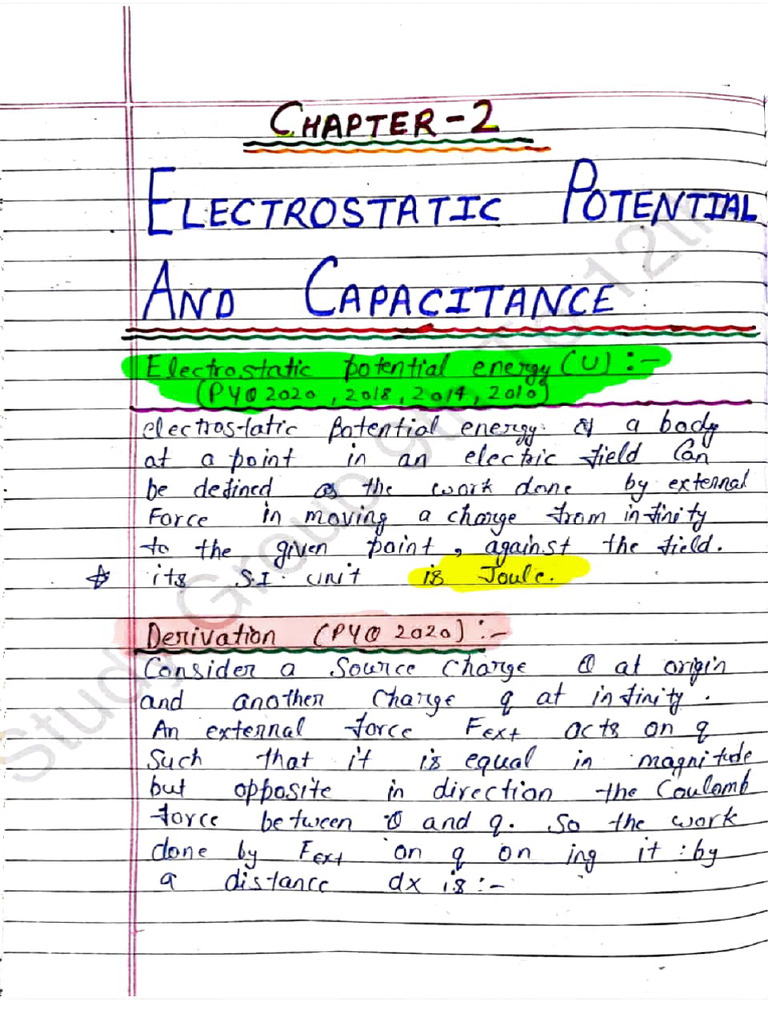 CHAPTER-2
ELECTROSTATIC POTENTIAL
AND CAPACITANCE
Electrostatic potential energy (U) :-
(PYQ 2020, 2018, 2014, 2010)
electrostatic potential energy of a body
at a point in an electric field can
be defined as the work done by external
Force in moving a charge from infinity
to the given point, against the field.
its S.I. unit is Joule.
Derivation (PYQ 2020) :-
Consider a Source Charge Q at origin
and another Charge q at infinity.
An external force Fext acts on q
Such that it is equal in magnitude
but opposite in direction the Coulomb
force between Q and q. So the work
done by Fext on q on ing it : by
a distance dx is :-
Study Group 12th